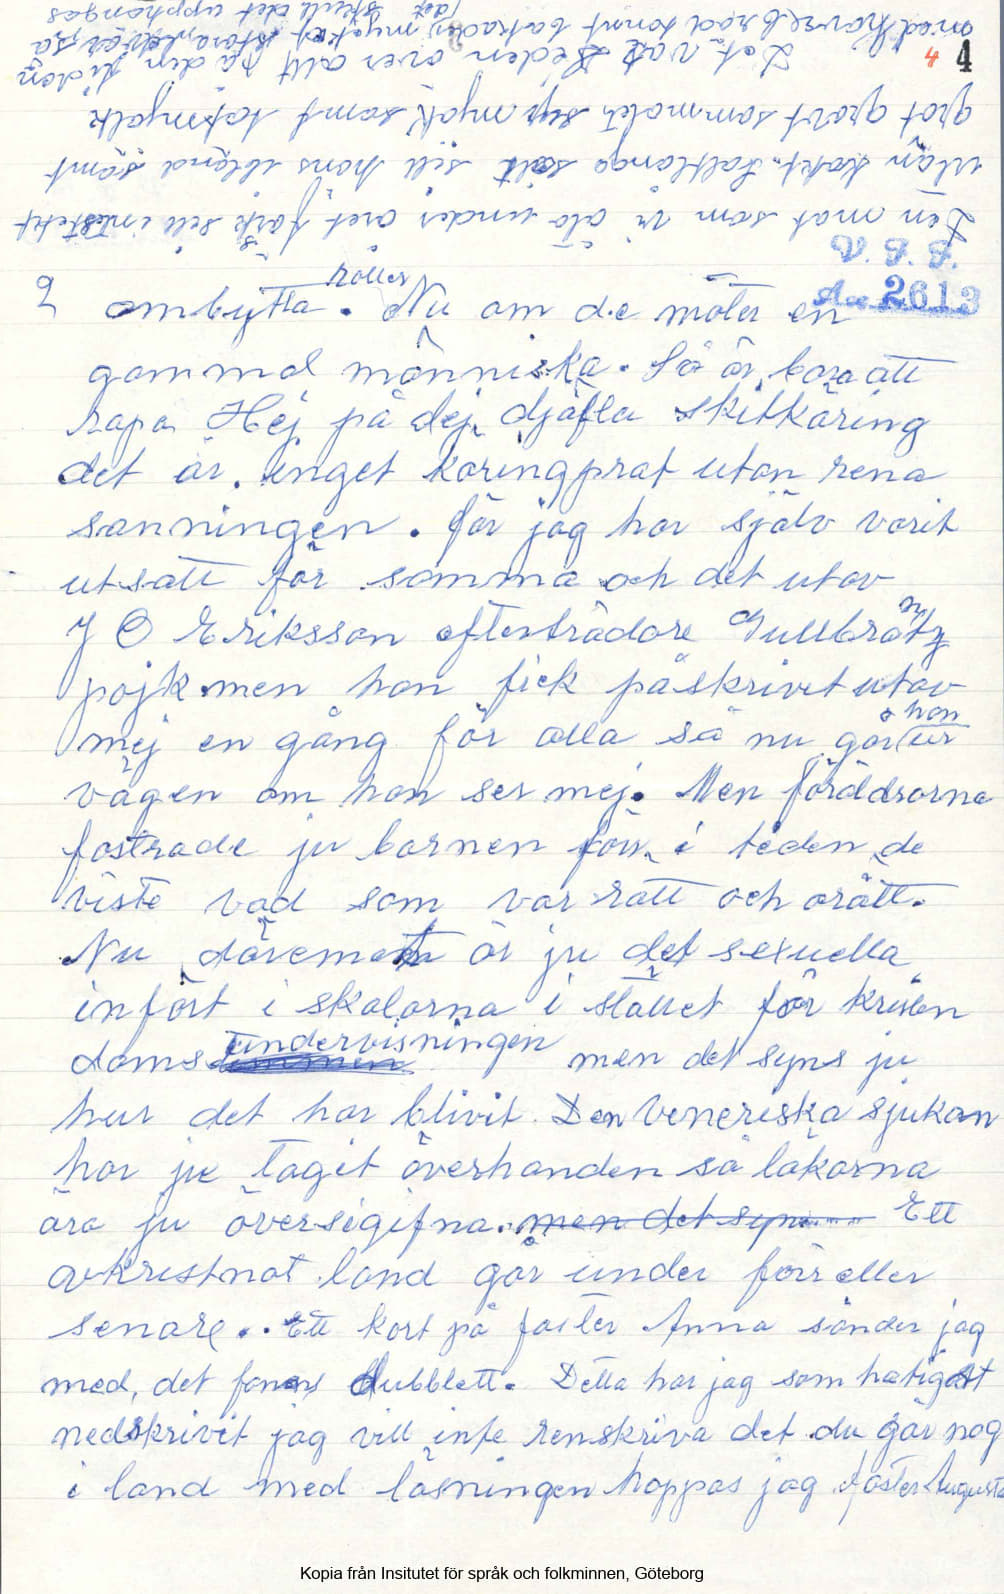 4 4
Den mat som vi åto under året färsk sill
utan kokt. Saltlango salt sill höns ibland samt
gröt grovt sammalet mjöl samt mjölk
Det var Seden över allt på den tiden
med havrebröd tomt bakades mycket stora levar, så
det skull det upphängas
V. F. F.
Acc 2613
9
ombytta roller. Nu om de möter en
gammal människa. Så är bara att
ropa Hej på dej djäfla skitkäring
det är inget käringprat utan rena
sanningen. för jag har själv varit
utsatt för samma och det utav
J O Eriksson efterträdare Gullbrantz
pojk men han fick påskrivit utav
mej en gång för alla så nu går han ur
vägen om han ser mej. Men föräldrarna
fostrade ju barnen förr i tiden de
viste vad som var rätt och orätt.
Nu däremot är ju det sexuella
infört i skolorna i stället för kristen
doms undervisningen men det syns ju
hur det har blivit. Den veneriska sjukan
har ju tagit överhanden så läkarna
äro ju översigifna. men det syns Ett
avkristnat land går under förr eller
senare. Ett kort på faster Anna sänder jag
med, det fanns dubblett. Detta har jag som hatigast
nedskrivit jag vill inte renskriva det du går nog
i land med läsningen hoppas jag faster Augusta
Kopia från Insitutet för språk och folkminnen, Göteborg